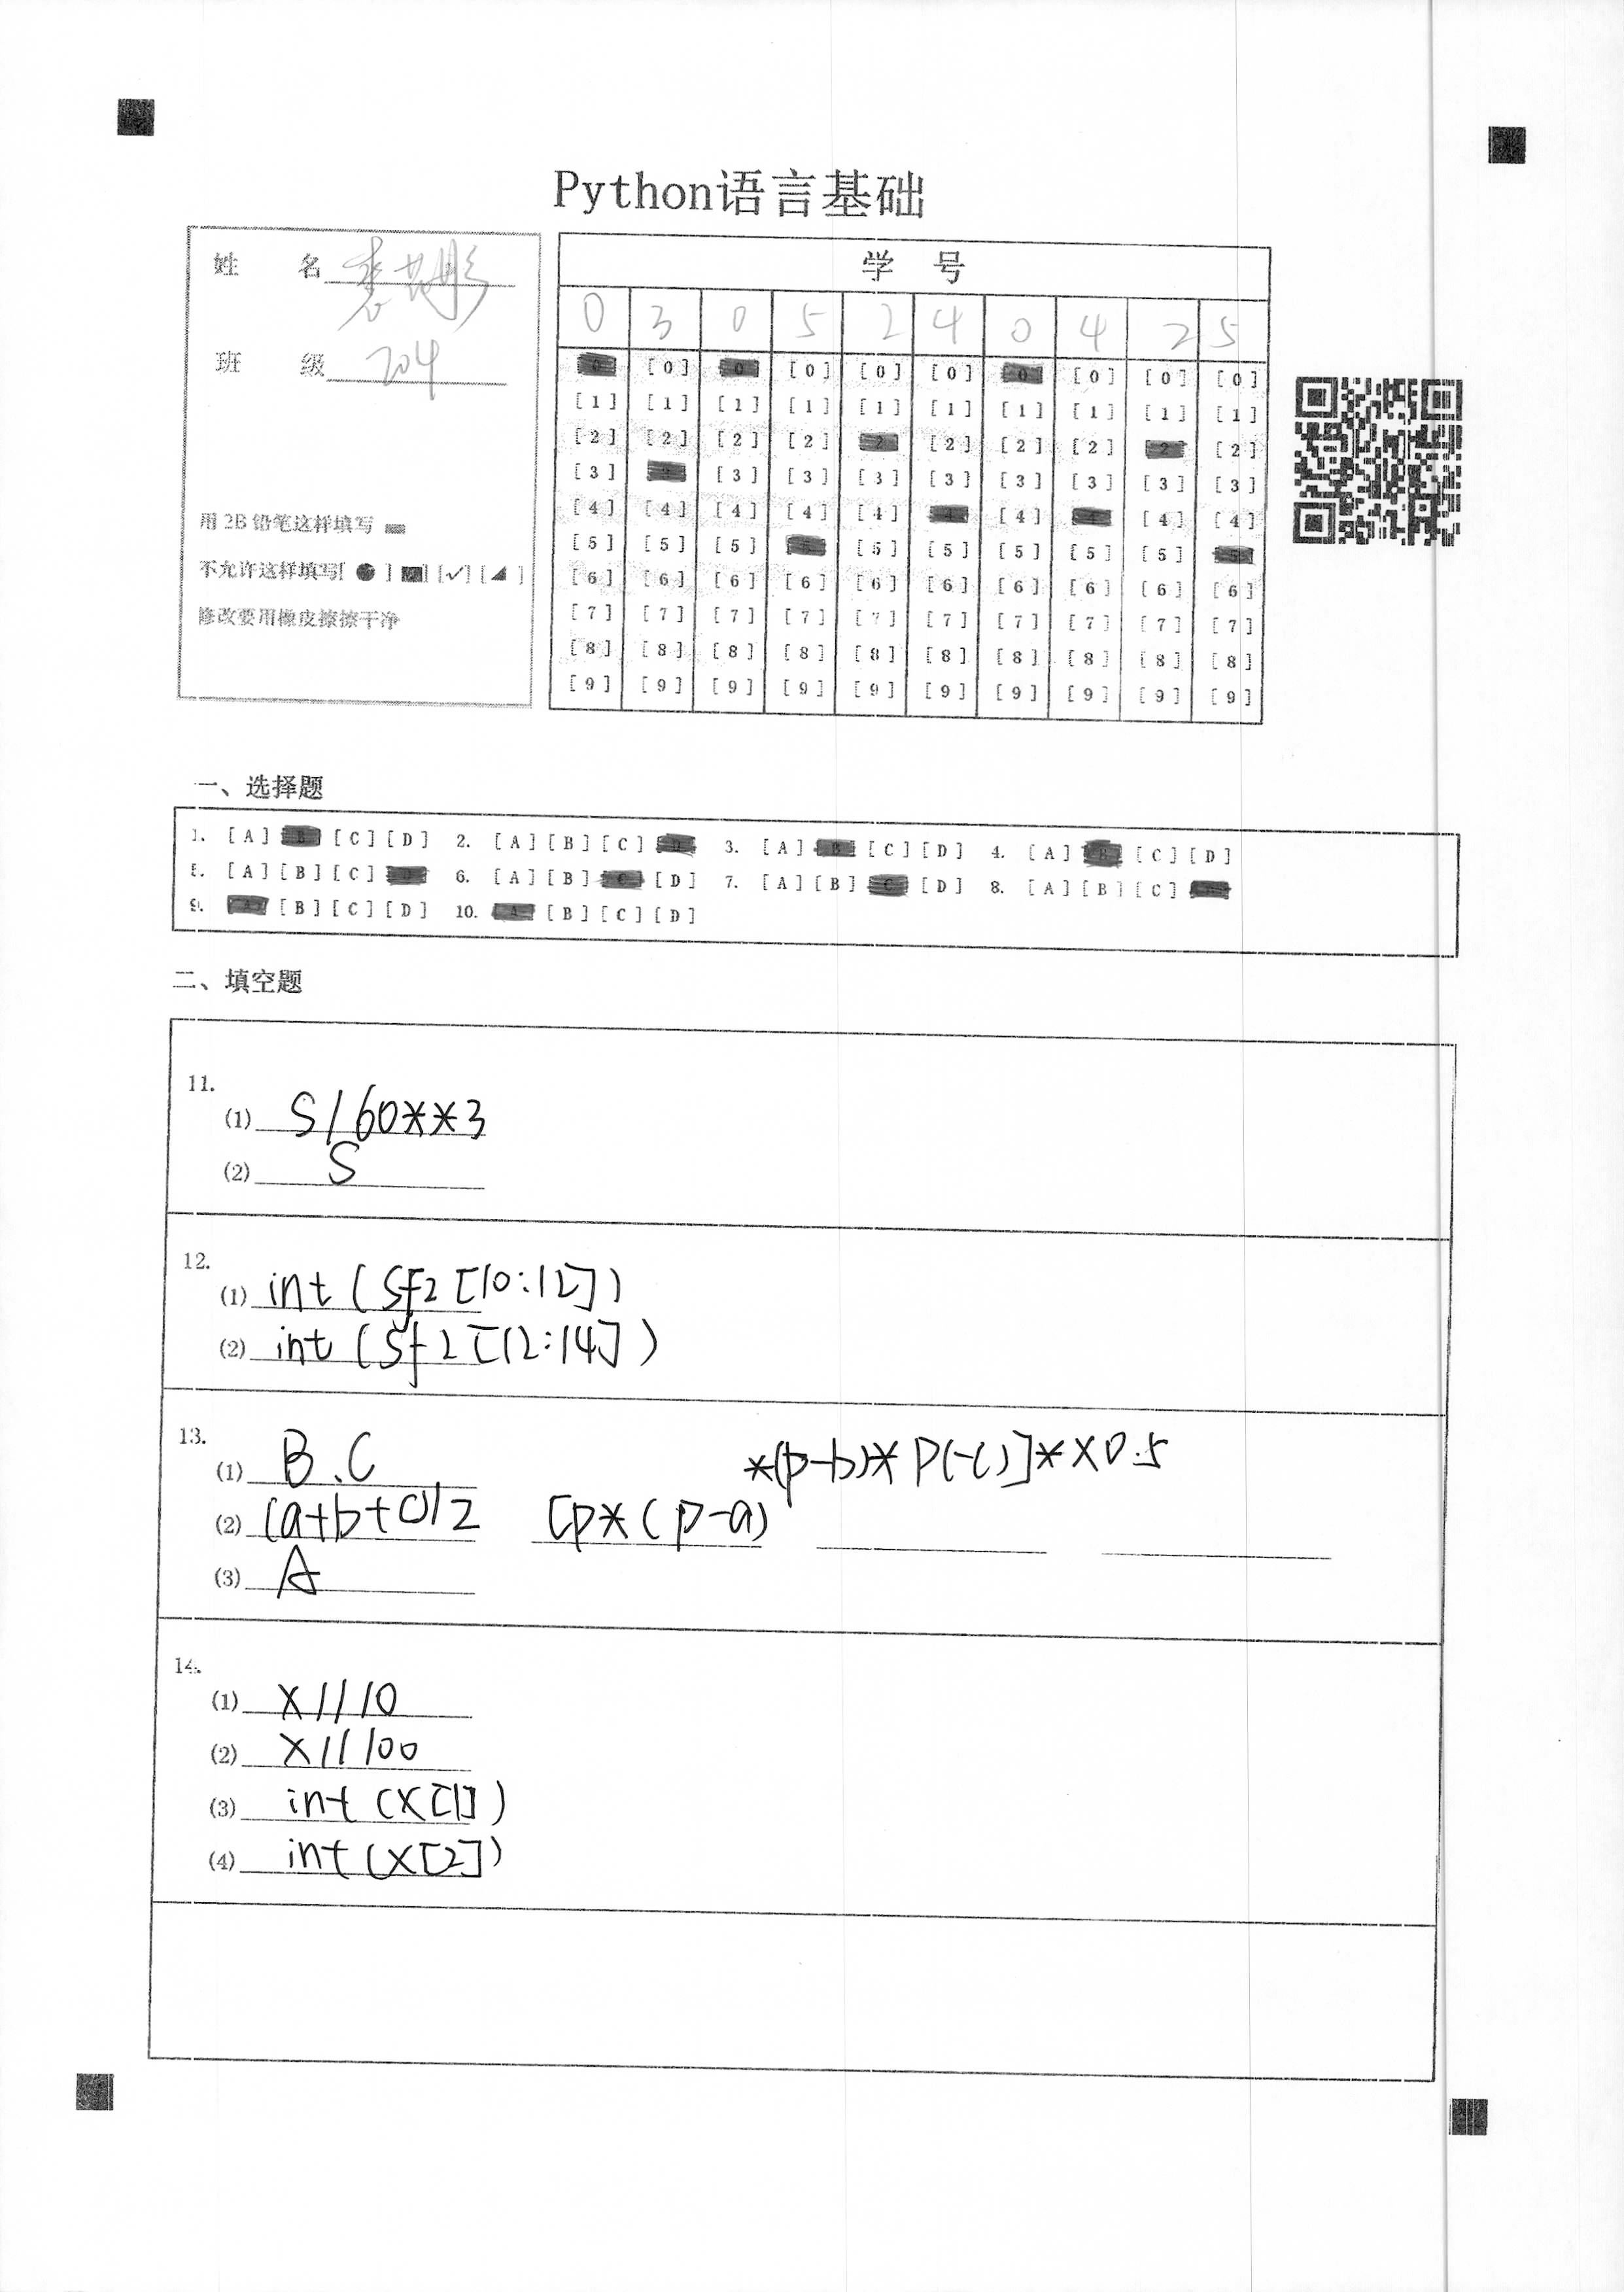 Python语言基础
姓 名
班 级 204
用 2B 铅笔这样填写
不允许这样填写[ ● ] [■] [✓] [◢ ]
修改要用橡皮擦擦干净
学 号
0 3 0 5 2 4 0 4 2 5
[0] [0] [0] [0] [0] [0] [0] [0] [0] [0]
[1] [1] [1] [1] [1] [1] [1] [1] [1] [1]
[2] [2] [2] [2] [2] [2] [2] [2] [2] [2]
[3] [3] [3] [3] [3] [3] [3] [3] [3] [3]
[4] [4] [4] [4] [4] [4] [4] [4] [4] [4]
[5] [5] [5] [5] [5] [5] [5] [5] [5] [5]
[6] [6] [6] [6] [6] [6] [6] [6] [6] [6]
[7] [7] [7] [7] [7] [7] [7] [7] [7] [7]
[8] [8] [8] [8] [8] [8] [8] [8] [8] [8]
[9] [9] [9] [9] [9] [9] [9] [9] [9] [9]
一、选择题
1. [A] [B] [C] [D] 2. [A] [B] [C] [D] 3. [A] [B] [C] [D] 4. [A] [B] [C] [D]
5. [A] [B] [C] [D] 6. [A] [B] [C] [D] 7. [A] [B] [C] [D] 8. [A] [B] [C] [D]
9. [A] [B] [C] [D] 10. [A] [B] [C] [D]
二、填空题
11.
(1) S/60**3
(2) S
12.
(1) int(Sf2[10:12])
(2) int(Sf2[12:14])
13.
(1) B、C
(2) (a+b+c)/2 [p*(p-a) *(p-b)*P(-c)]**0.5
(3) A
14.
(1) X//10
(2) X//100
(3) int(X[1])
(4) int(X[2])